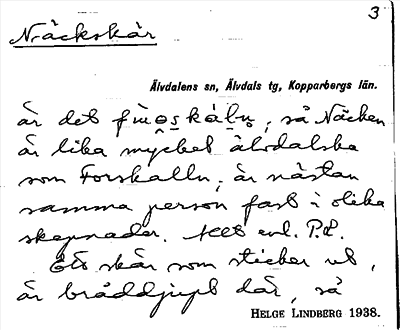 3
Näckskär
Älvdalens sn, Älvdals tg, Kopparbergs län.
är det , så Näcken
är lika mycket älvdalska
som Forskalln, är nästan
samma person fast i olika
skepnader. Allt enl. P.d.
Ett skär som sticker ut,
är bråddjupt där, så
HELGE LINDBERG 1938.